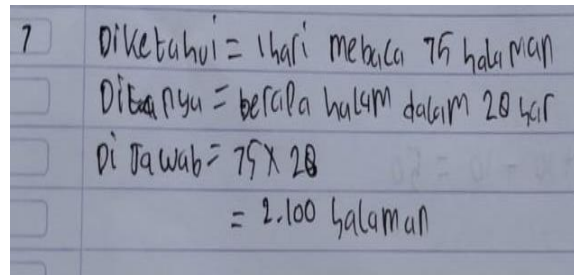 7 Diketahui = 1 hari mebaca 75 halaman
Ditanya = berapa halam dalam 28 har
Di Jawab = 75 X 28
= 2.100 halaman